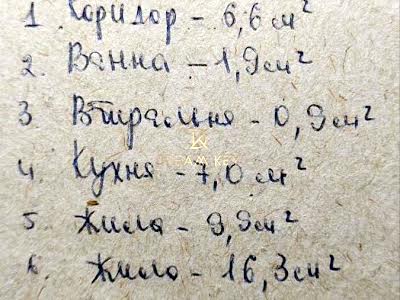 1 Коридор - 6,6 м²
2. Ванна - 1,9 м²
3 Вбиральня - 0,9 м²
4. Кухня - 7,0 м²
5. Жила - 9,9 м²
6. Жила - 16,3 м²